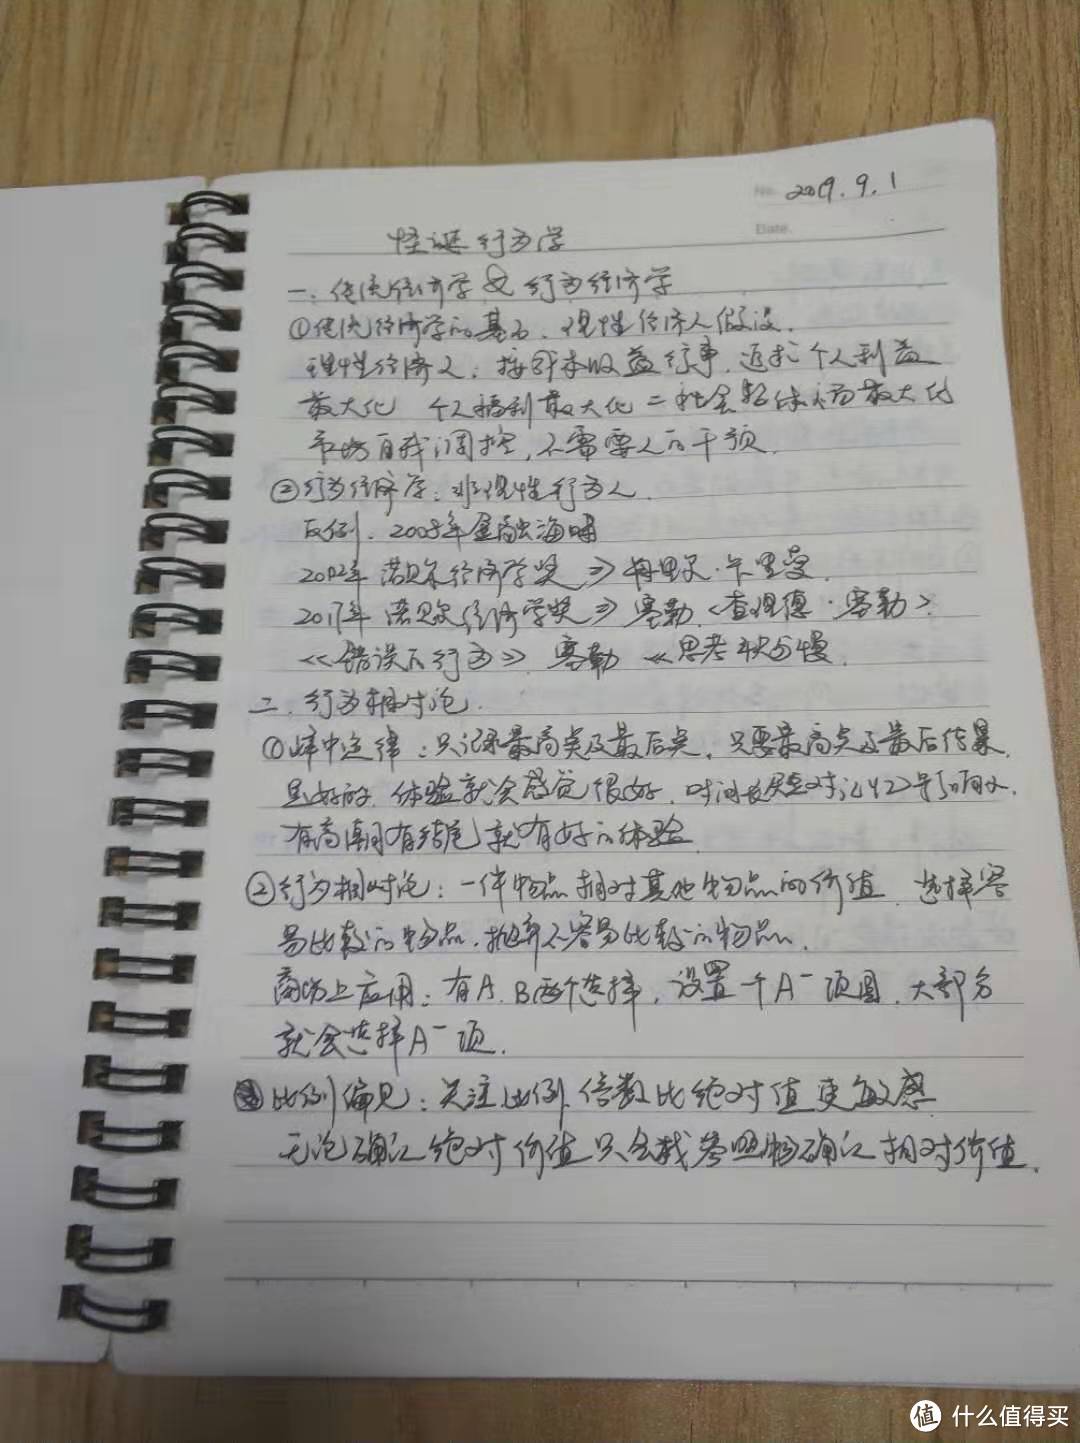 No. 2019.9.1
Date.
怪诞行为学
一、传统经济学 & 行为经济学
①传统经济学的基石、理性经济人假设.
理性经济人:按成本收益行事,追求个人利益
最大化 个人福利最大化=社会整体福利最大化
市场自我调控,不需要人的干预.
②行为经济学:非理性行为人.
反例.2008年金融海啸
2002年 诺贝尔经济学奖 => 卡里曼.
2017年 诺贝尔经济学奖 => 塞勒.<查理德·塞勒>.
《错误的行为》 塞勒 《思考快与慢.
二.行为相对论.
①峰中定律:只记录最高点及最后点.只要最高点及最后结果
是好的,体验就会感觉很好.时间长短对记忆影响小.
有高潮有结尾就有好的体验
②行为相对论:一件物品相对其他物品的价值 选择容
易比较的物品.抛弃不容易比较的物品.
商场上应用:有A.B两个选择,设置一个A⁻项,大部分
就会选择A⁻项.
③比例偏见:关注比例.倍数比绝对值更敏感
无论确认绝对价值只会找参照物确认相对价值.
值 什么值得买